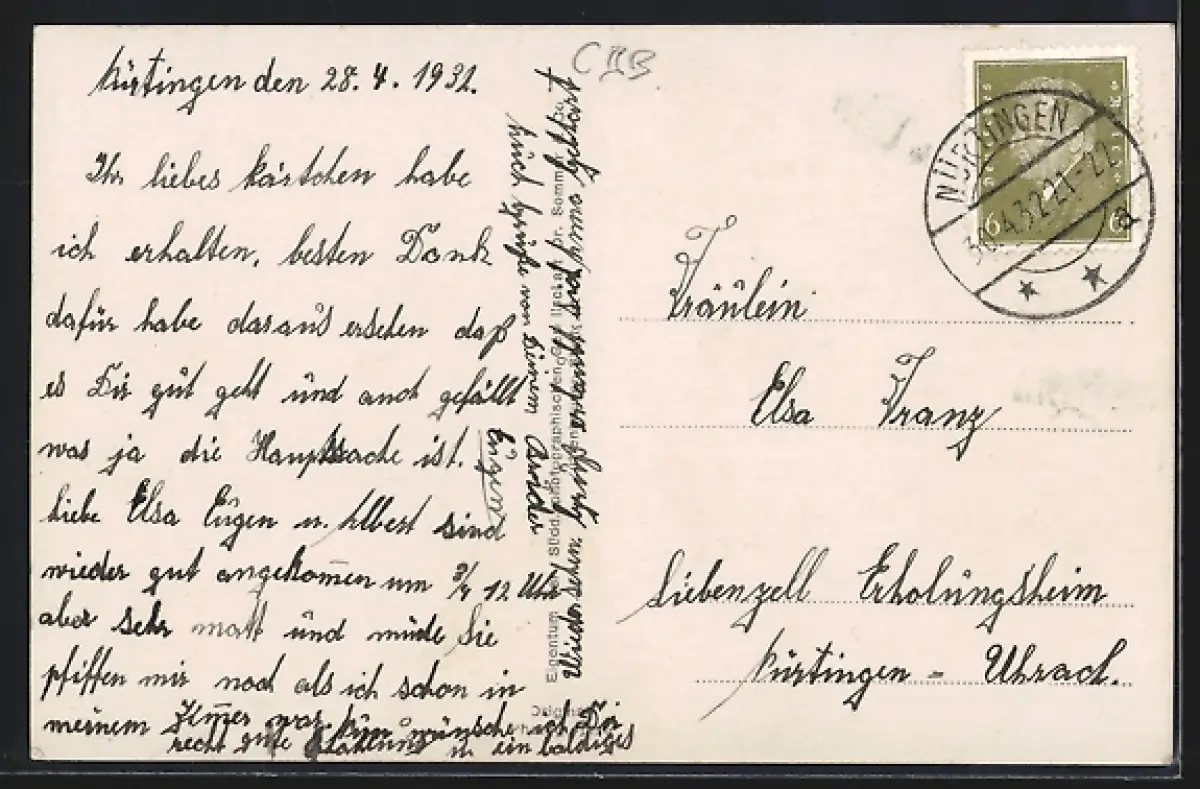 Nürtingen den 28. 4. 1932.
Ihr liebes Kärtchen habe
ich erhalten, besten Dank
dafür habe daraus ersehen daß
es Dir gut geht und auch gefällt
was ja die Hauptsache ist.
Liebe Elsa Eugen u. Albert sind
wieder gut angekommen um 3/4 12 Uhr
aber sehr matt und müde Sie
pfiffen mir noch als ich schon in
meinem Zimmer war. Nun wünsche ich Dir
recht gute Erholung u. ein baldiges
Wiedersehen Gruß
Euch Grüße von Deinem Bruder
Eugen
C II B
Eigentum
NÜRTINGEN
30.4.32.21-22
a
6 6
Fräulein
Elsa Franz
Liebenzell Erholungsheim
Nürtingen - Uhrach.